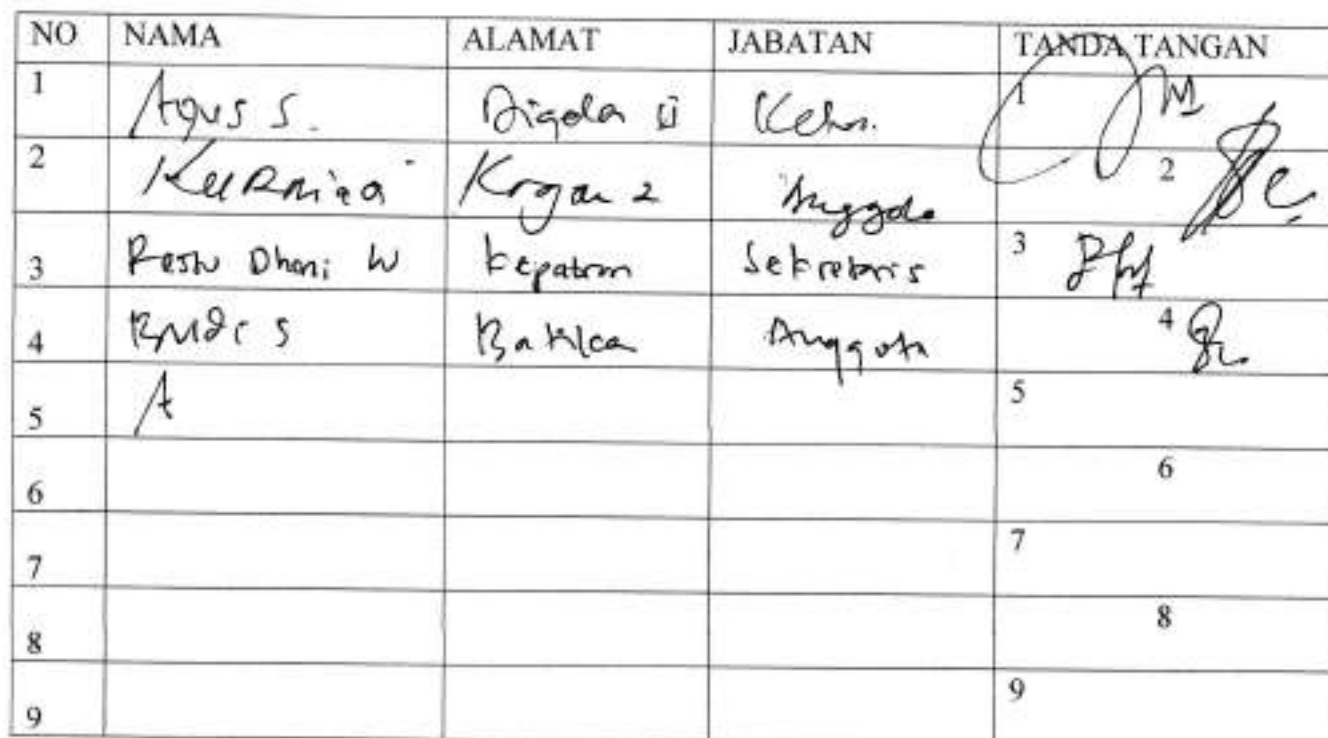 NO NAMA ALAMAT JABATAN TANDA TANGAN
1 Agus S. Digola II Ketua 1
2 Kurniaa Krgan 2 Anggota 2
3 Restu Dhani W Kepatran Sekretaris 3
4 Budi S Anggota 4
5 A 5
6 6
7 7
8 8
9 9